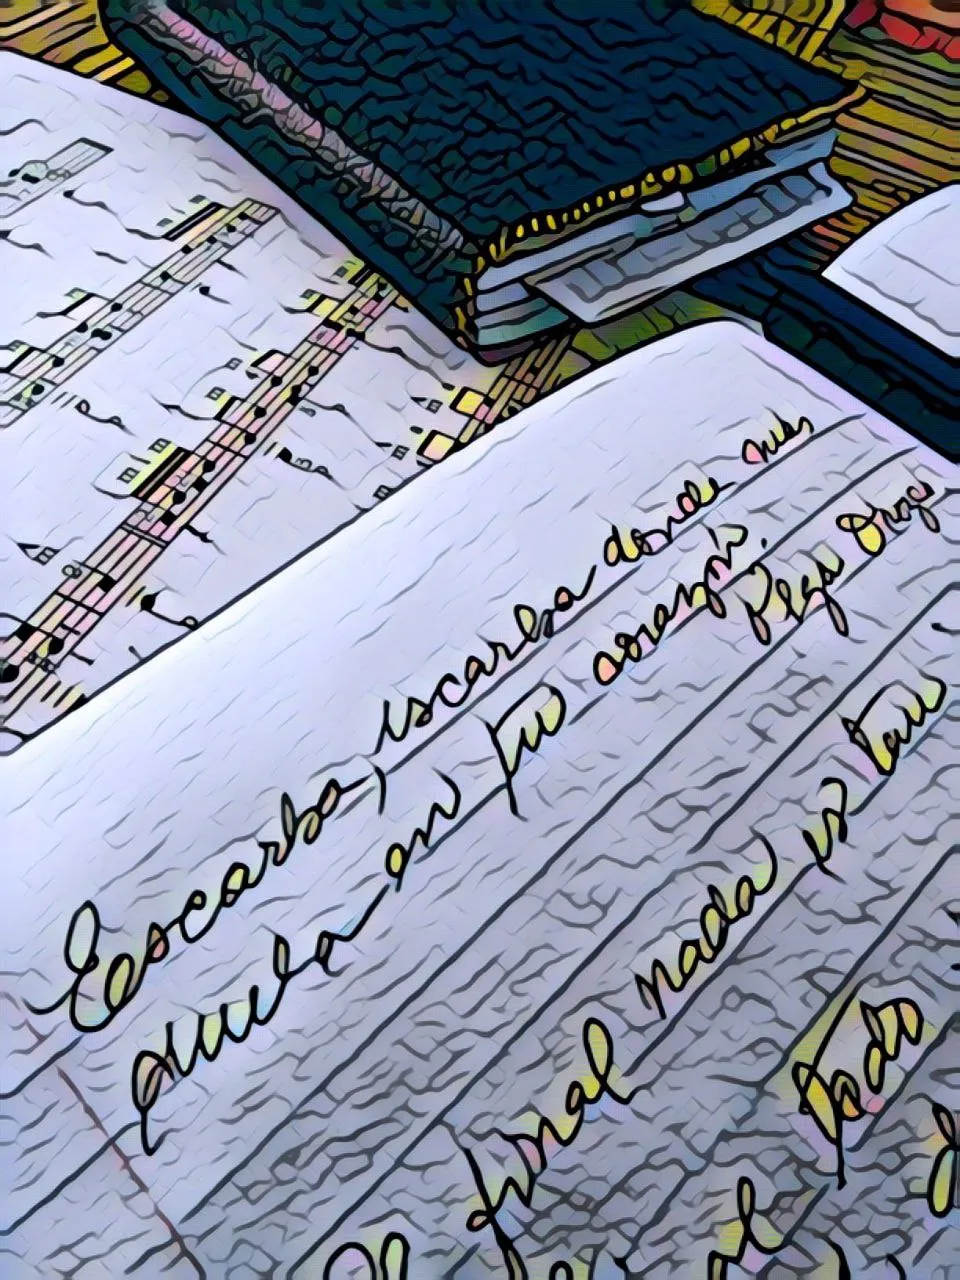 Escarba, escarba donde más
duela en tu corazón.
Olga Orozc
final nada es tan
todo